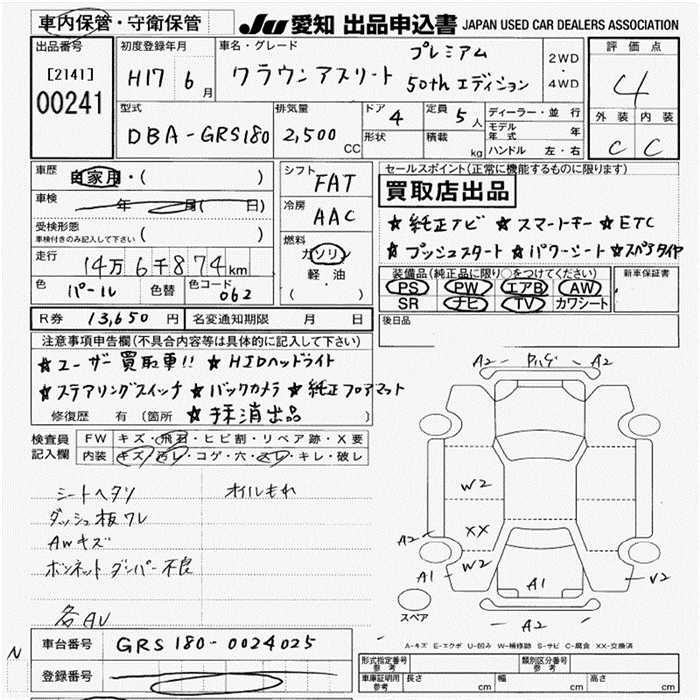 車内保管・守衛保管
JU愛知 出品申込書 JAPAN USED CAR DEALERS ASSOCIATION
出品番号
[2141]
00241
初度登録年月
H17 6月
車名・グレード
プレミアム
クラウンアスリート 50thエディション
2WD
・
4WD
評価点
4
外装 内装
C C
型式
DBA-GRS180
排気量
2,500 CC
ドア 4
形状
定員 5人
積載 kg
ディーラー・並行
モデル年式 年
ハンドル 左・右
車歴
自家用・( )
車検
年 月( 日)
受検形態
車検付きのみ記入して下さい ( )
走行
14万6千874km
色 パール 色替 色コード 062
シフト
FAT
冷房
AAC
燃料
ガソリン
軽油
( )
セールスポイント(正常に機能するものに限ります)
買取店出品
★純正ナビ ★スマートキー ★ETC
★プッシュスタート ★パワーシート ★スペアタイヤ
装備品(純正品に限り○をつけてください)
PS PW エアB AW
SR ナビ TV カワシート
新車保証書
後日品
R券 13,650円 名変通知期限 月 日
注意事項申告欄(不具合内容等は具体的に記入して下さい)
★ユーザー買取車!! ★HIDヘッドライト
★ステアリングスイッチ ★バックカメラ ★純正フロアマット
修復歴 有(箇所 ★抹消出品 )
検査員記入欄
FW キズ・飛石・ヒビ割・リペア跡・X要
内装 キズ・汚レ・コゲ・穴・スレ・キレ・破レ
シートヘタリ オイルもれ
ダッシュ板ワレ
AWキズ
ボンネットダンパー不良
各AU
A2 A2
W2
XX
A2
A1 W2
A1
V2
A2
スペア
A-キズ E-エクボ U-凹み W-補修跡 S-サビ C-腐食 XX-交換済
N
車台番号 GRS180-0024025
登録番号
形式指定番号 参考
類別区分番号 参考
車庫証明用 参考 長さ cm 幅 cm 高さ cm